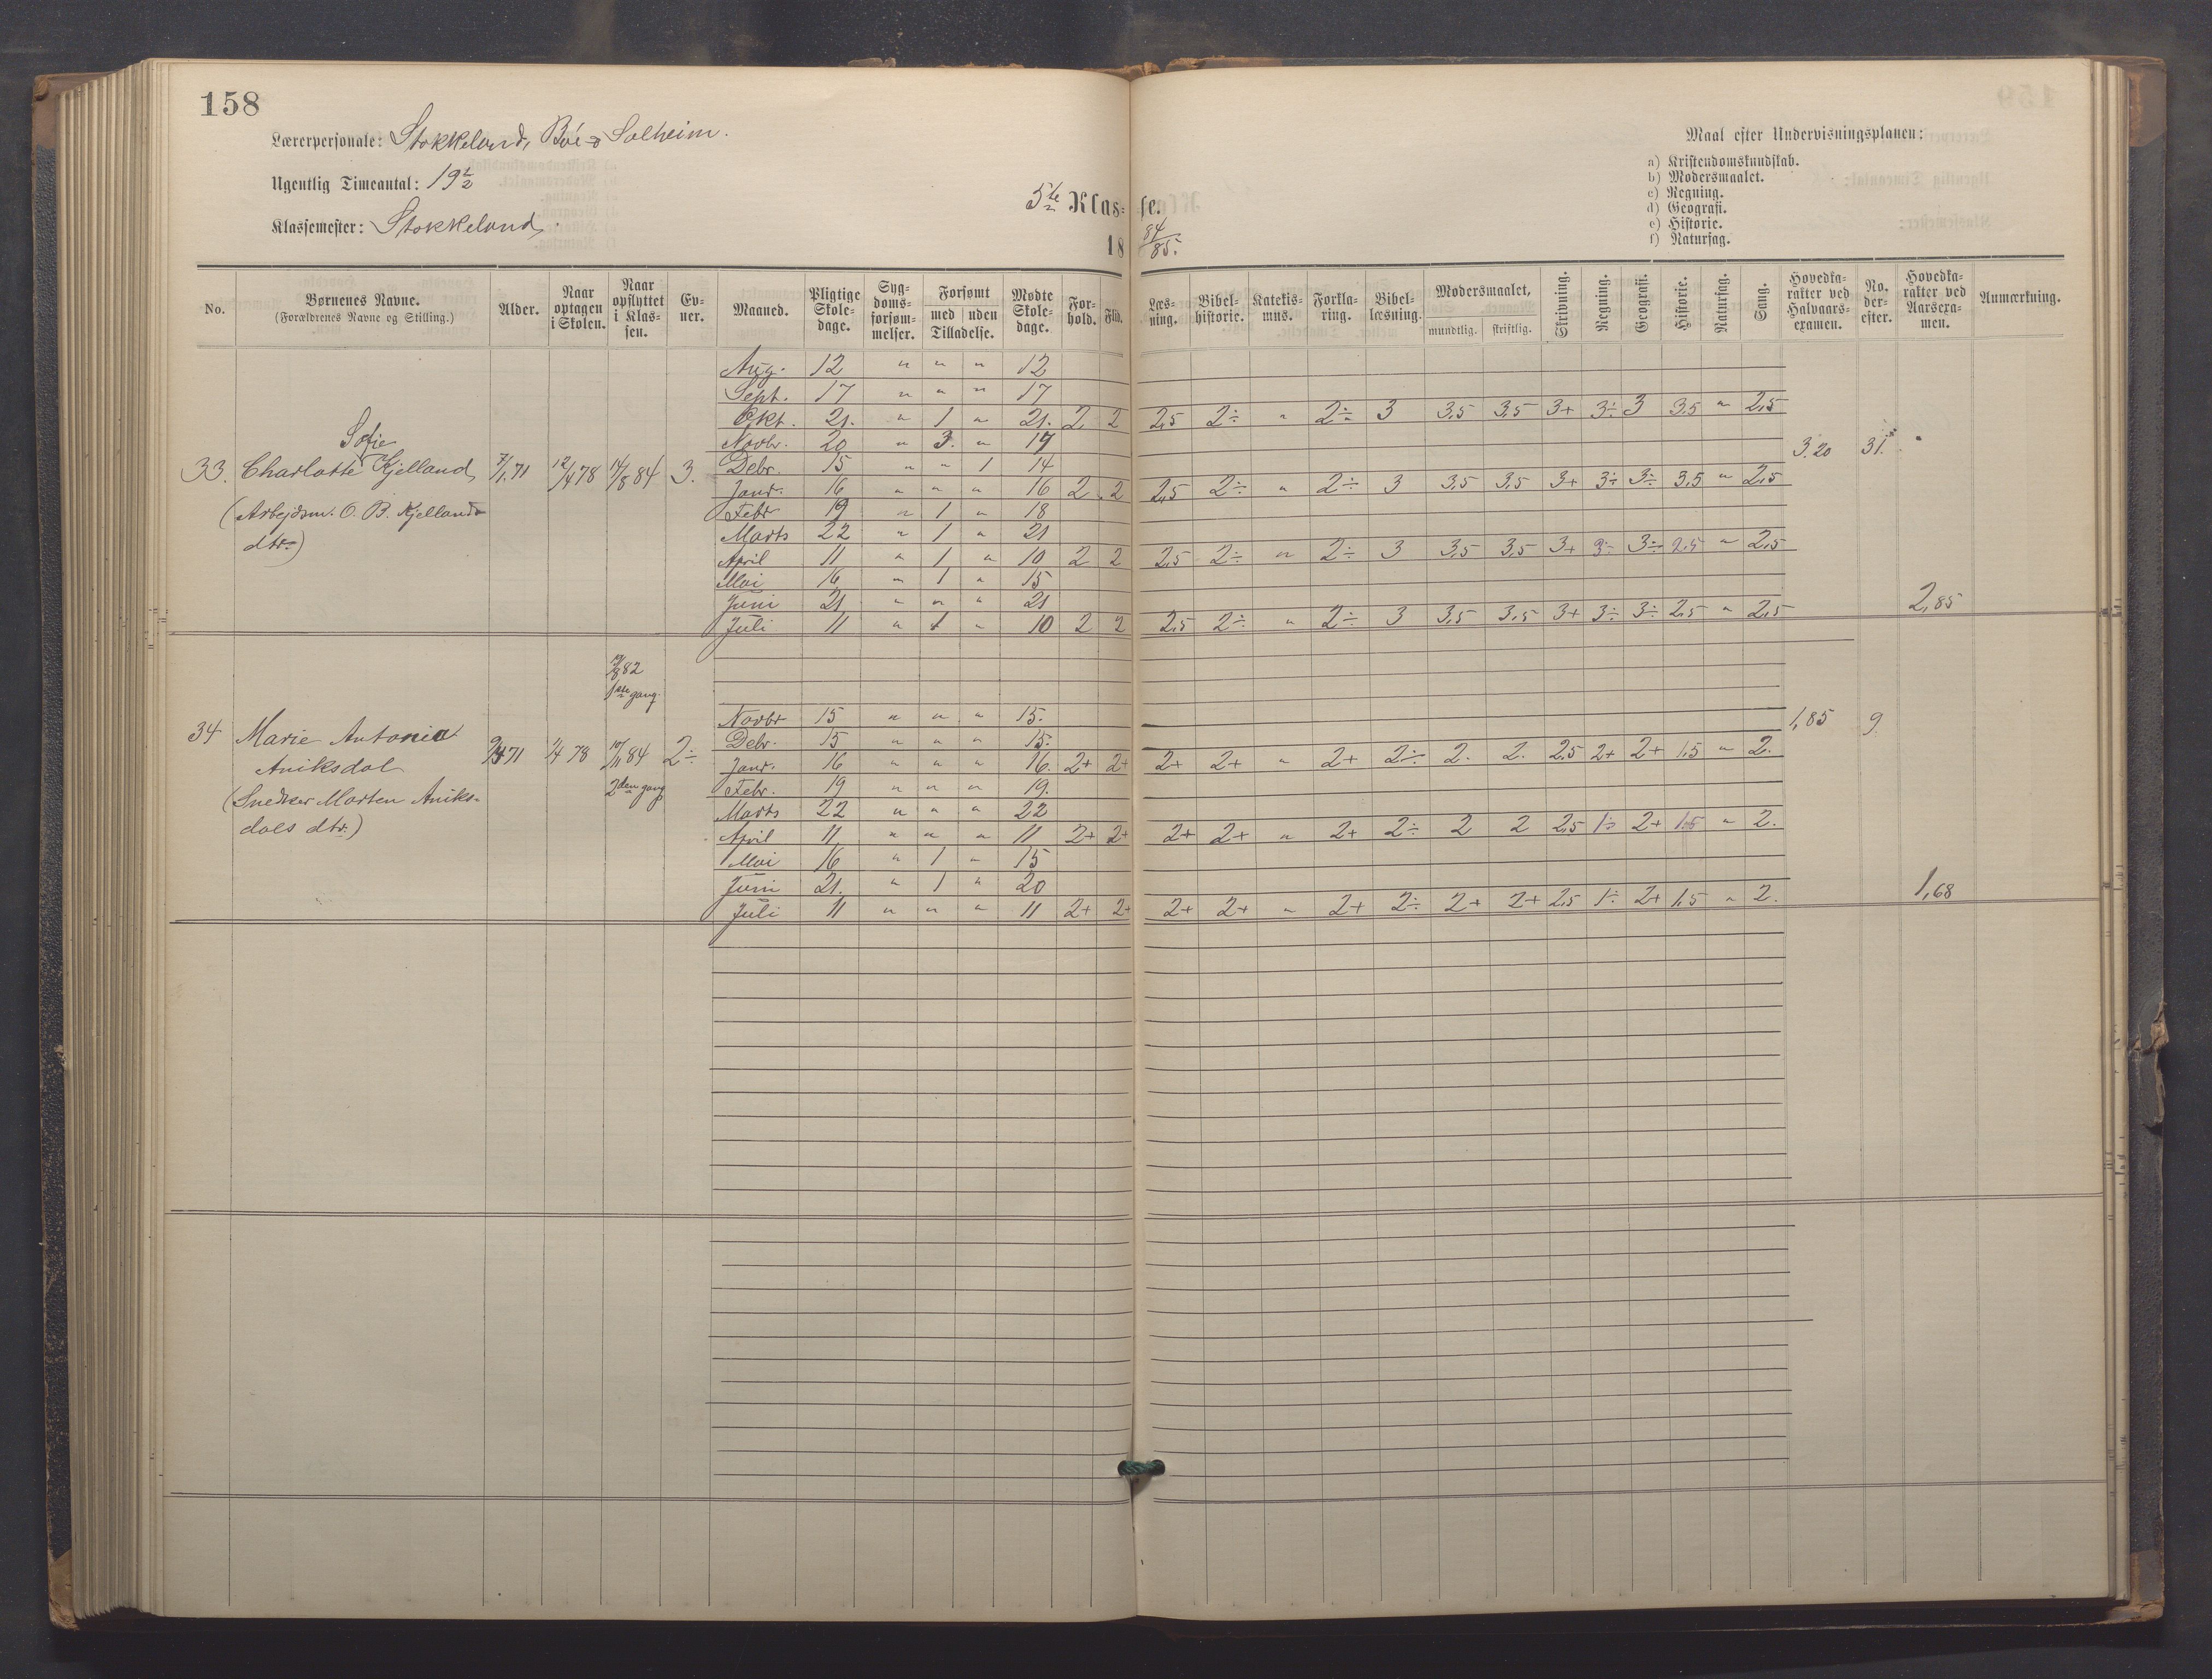 158
Lærerpersonale: Stokkeland, Bøe & Solheim.
Ugentlig Timeantal: 19½
Klassemester: Stokkeland.
5te Klasse.
18 84/85.
Maal efter Undervisningsplanen:
a) Kristendomskundskab.
b) Modersmaalet.
c) Regning.
d) Geografi.
e) Historie.
f) Naturfag.
No. | Børnenes Navne. (Forældrenes Navne og Stilling.) | Alder. | Naar optagen i Skolen. | Naar opflyttet i Klassen. | Evner. | Maaned. | Pligtige Skoledage. | Sygdomsforsømmelser. | Forsømt med | uden Tilladelse. | Mødte Skoledage. | Forhold. | Flid. | Læsning. | Bibelhistorie. | Katekismus. | Forklaring. | Bibellæsning. | Modersmaalet, mundtlig. | skriftlig. | Skrivning. | Regning. | Geografi. | Historie. | Naturfag. | Sang. | Hovedkarakter ved Halvaarsexamen. | No. derefter. | Hovedkarakter ved Aarsexamen. | Anmærkning.
Aug. 12 " " " 12
Sept. 17 " " " 17
Okt. 21. " 1 " 21. 2 2 2,5 2÷ " 2÷ 3 3,5 3,5 3+ 3÷ 3 3,5 " 2,5
Novbr. 20 " 3. " 17
3.20 31.
Sofie
33. Charlotte Kjelland 7/1 71 12/4 78 14/8 84 3. Debr. 15 " " 1 14
Janr. 16 " " " 16 2 2 2,5 2÷ " 2÷ 3 3,5 3,5 3+ 3÷ 3÷ 3,5 " 2,5
(Arbejdsm. O. B. Kjellands Febr 19 " 1 " 18
dtr.) Marts 22 " 1 " 21
April 11 " 1 " 10 2 2 2,5 2÷ " 2÷ 3 3,5 3,5 3+ 3÷ 3÷ 2,5 " 2,5
Mai 16 " 1 " 15
Juni 21 " " " 21
2,85
Juli 11 " 1 " 10 2 2 2,5 2÷ " 2÷ 3 3,5 3,5 3+ 3÷ 3÷ 2,5 " 2,5
82
1ste gang.
Novbr 15 " " " 15.
1,85 9
34 Marie Antonia Debr. 15 " " " 15.
Aniksdal 71 78 84 2÷ Janr. 16 " " " 16. 2+ 2+ 2+ 2+ " 2+ 2÷ 2. 2. 2,5 2+ 2+ 1,5 " 2.
2den gang Febr. 19 " " " 19.
(Snedker Morten Aniks- Marts 22 " " " 22
dals dtr.) April 11 " " " 11 2+ 2+ 2+ 2+ " 2+ 2÷ 2 2 2,5 1÷ 2+ 1,5 " 2.
Mai 16 " 1 " 15
Juni 21. " 1 " 20
1,68
Juli 11 " " " 11 2+ 2+ 2+ 2+ " 2+ 2÷ 2+ 2+ 2,5 1÷ 2+ 1,5 " 2.